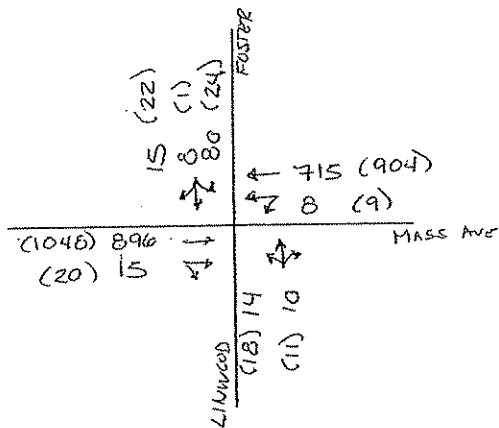 FOSTER
(22) (1) (24)
15 8 80
← 715 (904)
8 (9)
MASS AVE
(1048) 896 →
(20) 15
(18) 14
(11) 10
LINWOOD